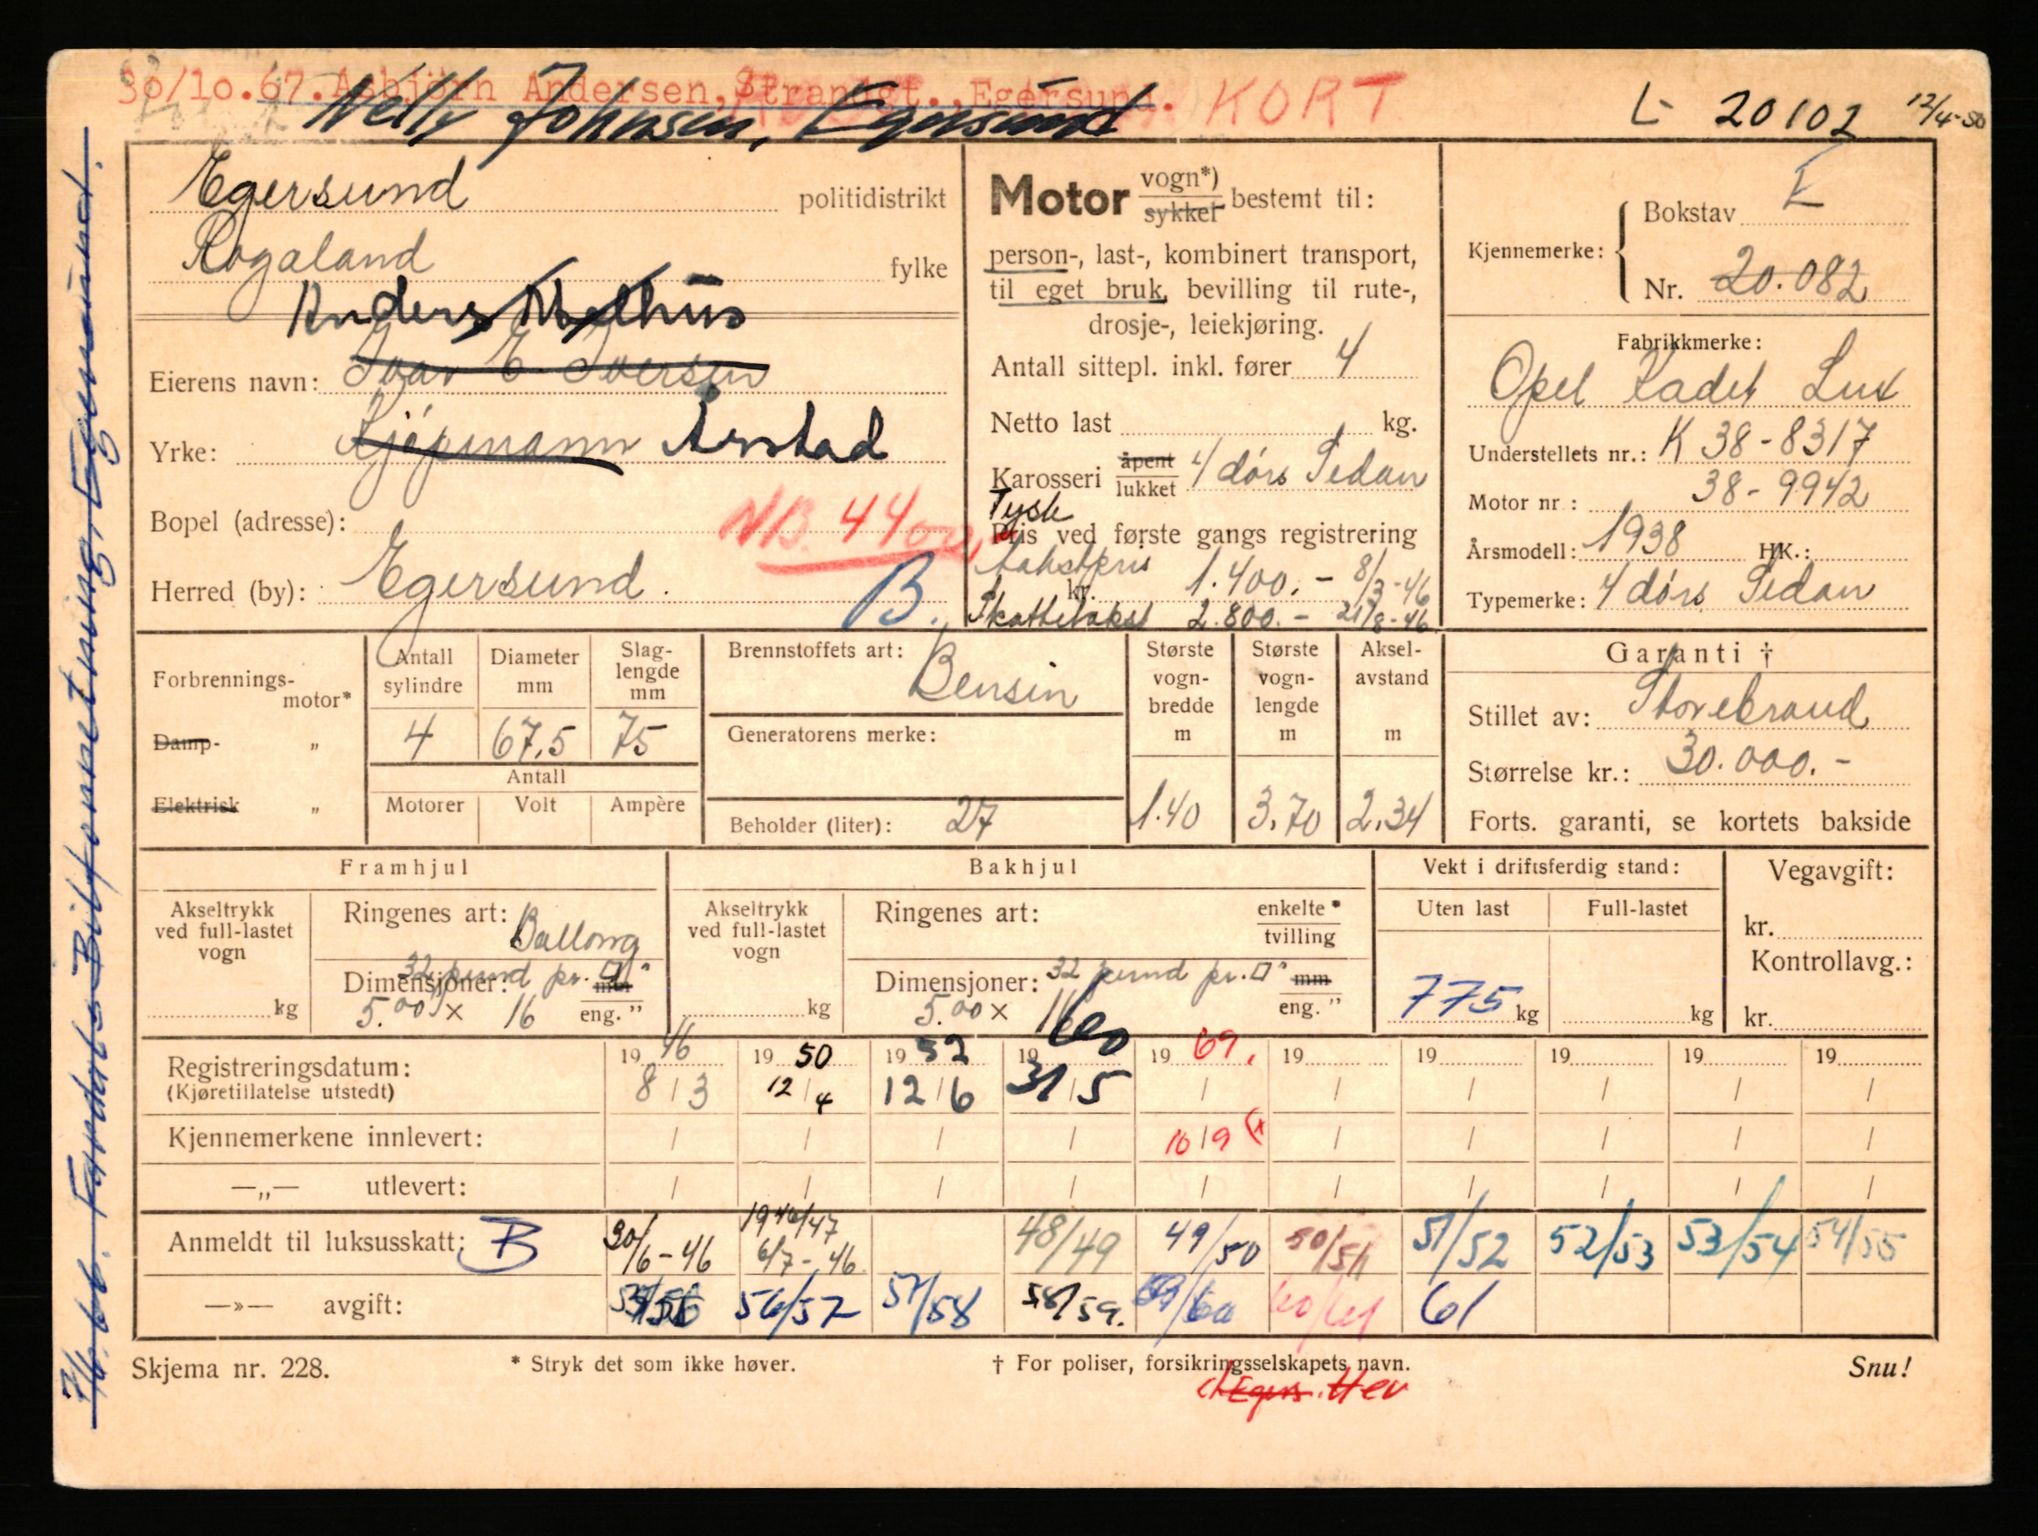 30/10.67. Asbjörn Andersen, Strandgt., Egersund. KORT
Nelly Johnsen, Egersund
L- 20102 12/4-50
Egersund politidistrikt
Rogaland fylke
Anders Mælhus
Eierens navn: Ivar E. Iversen
Yrke: Kjøpmann Årstad
Bopel (adresse):
NB. 4400,
Herred (by): Egersund. B.
Motor vogn*) sykkel bestemt til:
person-, last-, kombinert transport,
til eget bruk, bevilling til rute-,
drosje-, leiekjøring.
Antall sittepl. inkl. fører 4
Netto last kg.
Karosseri åpent lukket 4 dørs Sedan
Tysk
Pris ved første gangs registrering
takstpris
kr. 1.400.- 8/3-46
Skattetakst 2.800.- 21/8-46
Kjennemerke: Bokstav L
Nr. 20.082
Fabrikkmerke:
Opel Kadet Lux
Understellets nr.: K 38-8317
Motor nr: 38-9942
Årsmodell: 1938 HK.:
Typemerke: 4 dørs Sedan
Forbrennings-
motor*
Damp- „
Elektrisk „
Antall sylindre 4
Diameter mm 67,5
Slag-lengde mm 75
Antall
Motorer Volt Ampère
Brennstoffets art: Bensin
Generatorens merke:
Beholder (liter): 27
Største vogn-bredde m 1.40
Største vogn-lengde m 3,70
Aksel-avstand m 2,34
Garanti †
Stillet av: Storebrand
Størrelse kr.: 30.000.-
Forts. garanti, se kortets bakside
Framhjul
Akseltrykk ved full-lastet vogn
kg
Ringenes art: Ballong
32 pund pr. □"
Dimensjoner: mm
5.00 x 16 eng. "
Bakhjul
Akseltrykk ved full-lastet vogn
kg
Ringenes art: enkelte* tvilling
Dimensjoner: 32 pund pr. □" mm
5.00 x 16 eng. "
Vekt i driftsferdig stand:
Uten last Full-lastet
775 kg kg
Vegavgift:
kr.
Kontrollavg.:
kr.
Registreringsdatum: 1946 1950 1952 1960 1969. 19 19 19 19 19
(Kjøretillatelse utstedt) 8/3 12/4 12/6 31/5 / / / / / /
Kjennemerkene innlevert: / / / / 10/9 / / / / /
—„— utlevert: / / / / / / / / / /
Anmeldt til luksusskatt: B 30/6-46 1946/47 6/7-46 48/49 49/50 50/51 51/52 52/53 53/54 54/55
—»— avgift: 56/57 57/58 58/59. 59/60 60/61 61
Skjema nr. 228. * Stryk det som ikke høver. † For poliser, forsikringsselskapets navn. Snu!
7/6.66. Fordals Bilforretning, Egersund.